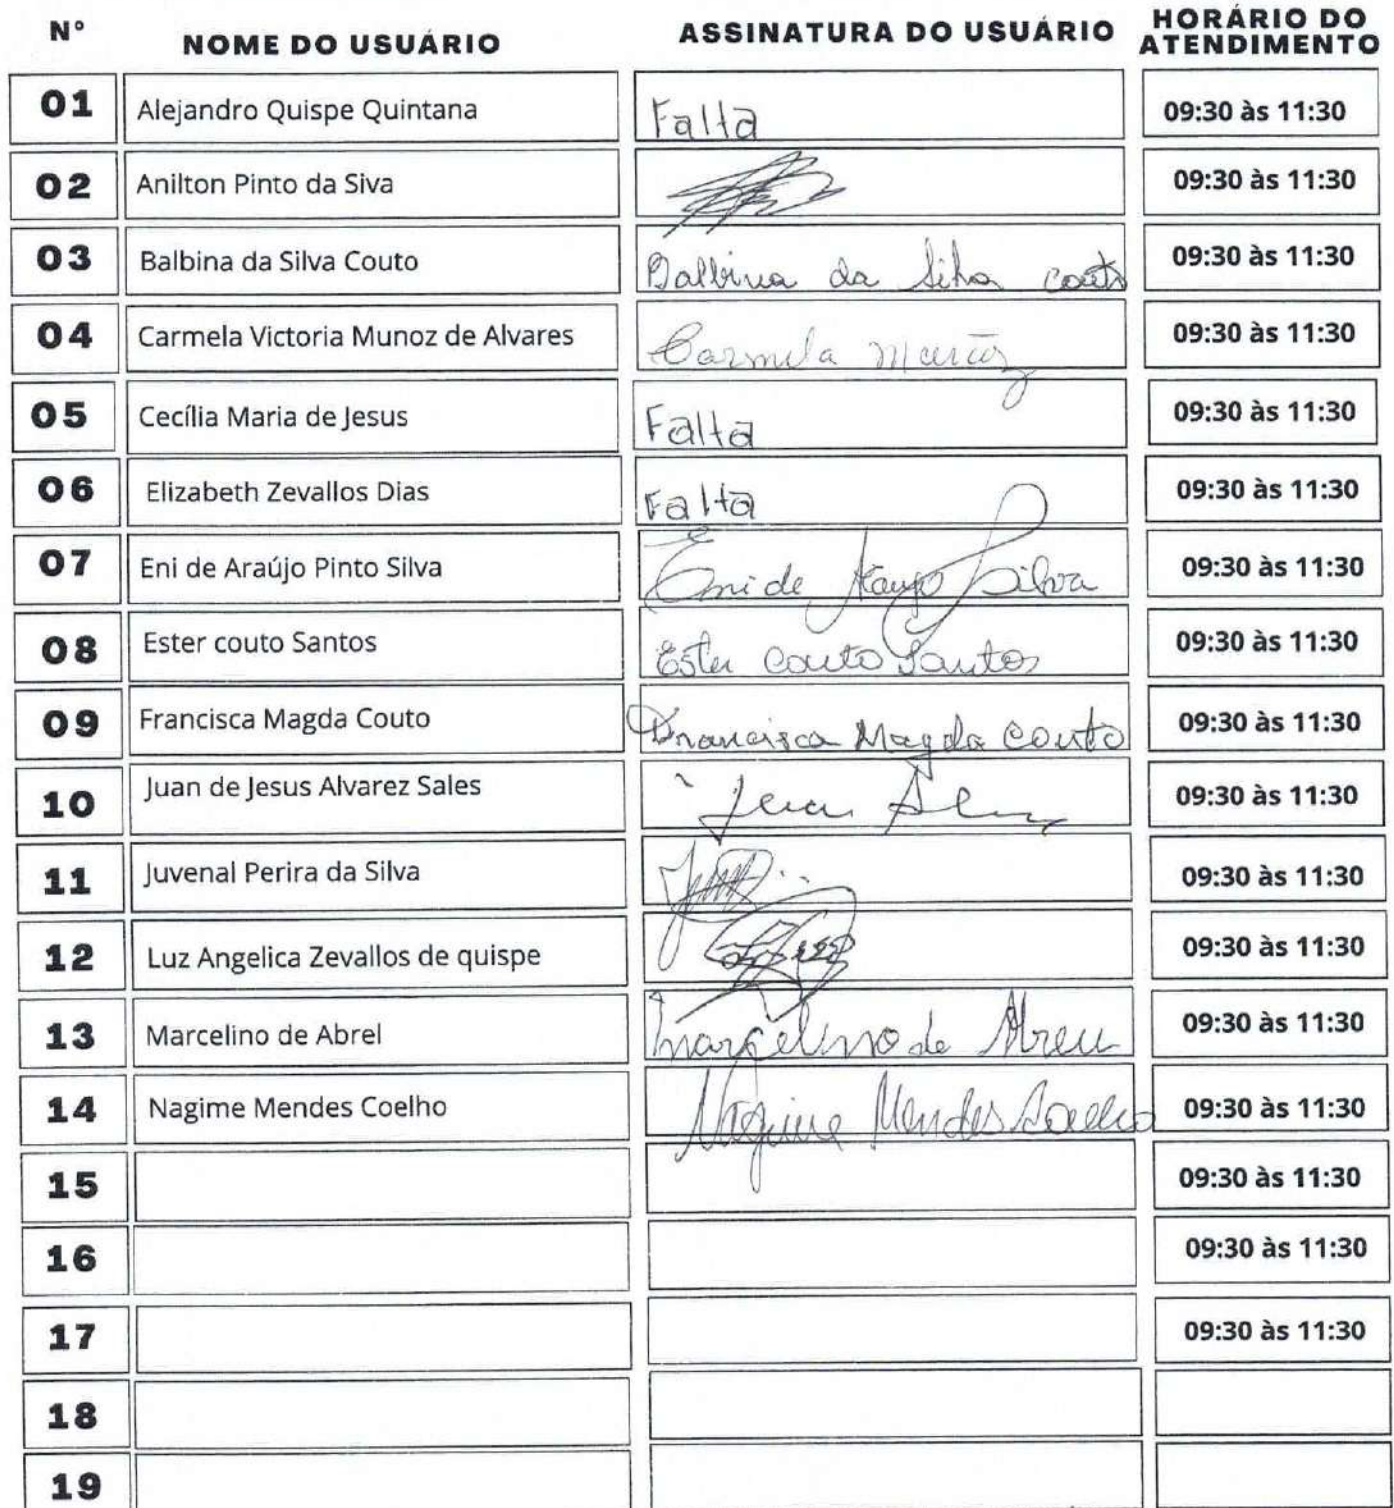 Nº NOME DO USUÁRIO ASSINATURA DO USUÁRIO HORÁRIO DO ATENDIMENTO
01 Alejandro Quispe Quintana Falta 09:30 às 11:30
02 Anilton Pinto da Siva 09:30 às 11:30
03 Balbina da Silva Couto Balbina da Silva couto 09:30 às 11:30
04 Carmela Victoria Munoz de Alvares Carmela Munõz 09:30 às 11:30
05 Cecília Maria de Jesus Falta 09:30 às 11:30
06 Elizabeth Zevallos Dias Falta 09:30 às 11:30
07 Eni de Araújo Pinto Silva Eni de Araujo Silva 09:30 às 11:30
08 Ester couto Santos Ester Couto Santos 09:30 às 11:30
09 Francisca Magda Couto Francisca Magda Couto 09:30 às 11:30
10 Juan de Jesus Alvarez Sales Juan 09:30 às 11:30
11 Juvenal Perira da Silva 09:30 às 11:30
12 Luz Angelica Zevallos de quispe 09:30 às 11:30
13 Marcelino de Abrel Marcelino de Abreu 09:30 às 11:30
14 Nagime Mendes Coelho Nagime Mendes Coelho 09:30 às 11:30
15 09:30 às 11:30
16 09:30 às 11:30
17 09:30 às 11:30
18
19